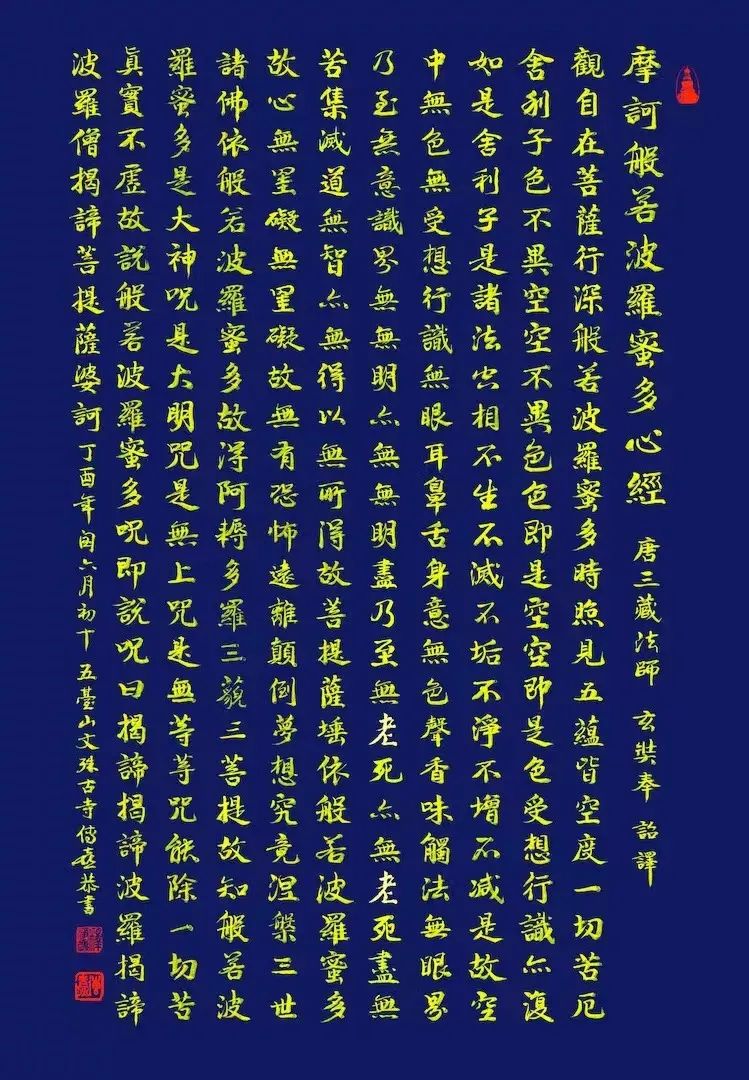 摩訶般若波羅蜜多心經 唐三藏法師 玄奘奉 詔譯
觀自在菩薩行深般若波羅蜜多時照見五蘊皆空度一切苦厄
舍利子色不異空空不異色色即是空空即是色受想行識亦復
如是舍利子是諸法空相不生不滅不垢不淨不增不减是故空
中無色無受想行識無眼耳鼻舌身意無色聲香味觸法無眼界
乃至無意識界無無明亦無無明盡乃至無老死亦無老死盡無
苦集滅道無智亦無得以無所得故菩提薩埵依般若波羅蜜多
故心無罣礙無罣礙故無有恐怖遠離顛倒夢想究竟涅槃三世
諸佛依般若波羅蜜多故得阿耨多羅三藐三菩提故知般若波
羅蜜多是大神咒是大明咒是無上咒是無等等咒能除一切苦
真實不虛故說般若波羅蜜多咒即說咒曰揭諦揭諦波羅揭諦
波羅僧揭諦菩提薩婆訶 丁酉年閏六月初十五臺山文殊古寺傳恭書